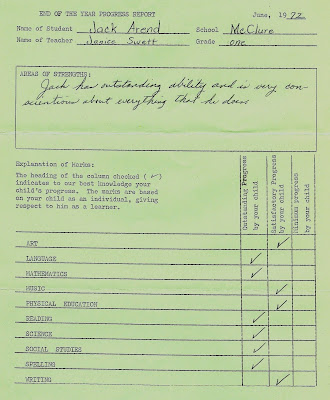 END OF THE YEAR PROGRESS REPORT June, 1972
Name of Student Jack Arend School McClure
Name of Teacher Janice Swett Grade one
AREAS OF STRENGTHS:
Jack has outstanding ability and is very con-
scientious about everything that he does.
Explanation of Marks:
The heading of the column checked (✓)
indicates to our best knowledge your
child's progress. The marks are based
on your child as an individual, giving
respect to him as a learner.
Outstanding Progress
by your child
Satisfactory Progress
by your child
Minimum progress
by your child
ART ✓
LANGUAGE ✓
MATHEMATICS ✓
MUSIC ✓
PHYSICAL EDUCATION ✓
READING ✓
SCIENCE ✓
SOCIAL STUDIES ✓
SPELLING ✓
WRITING ✓